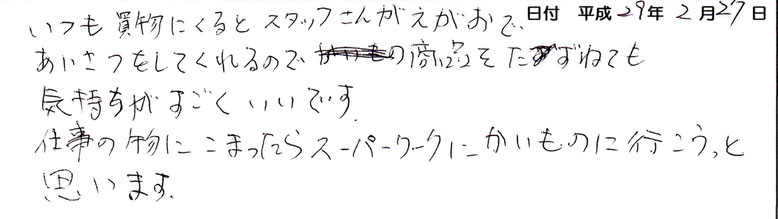 日付 平成29年2月27日
いつも買物にくるとスタッフさんがえがおで、
あいさつをしてくれるのでの商品をたずねても
気持ちがすごくいいです。
仕事の物にこまったらスーパーワークにかいものに行こうっと
思います。